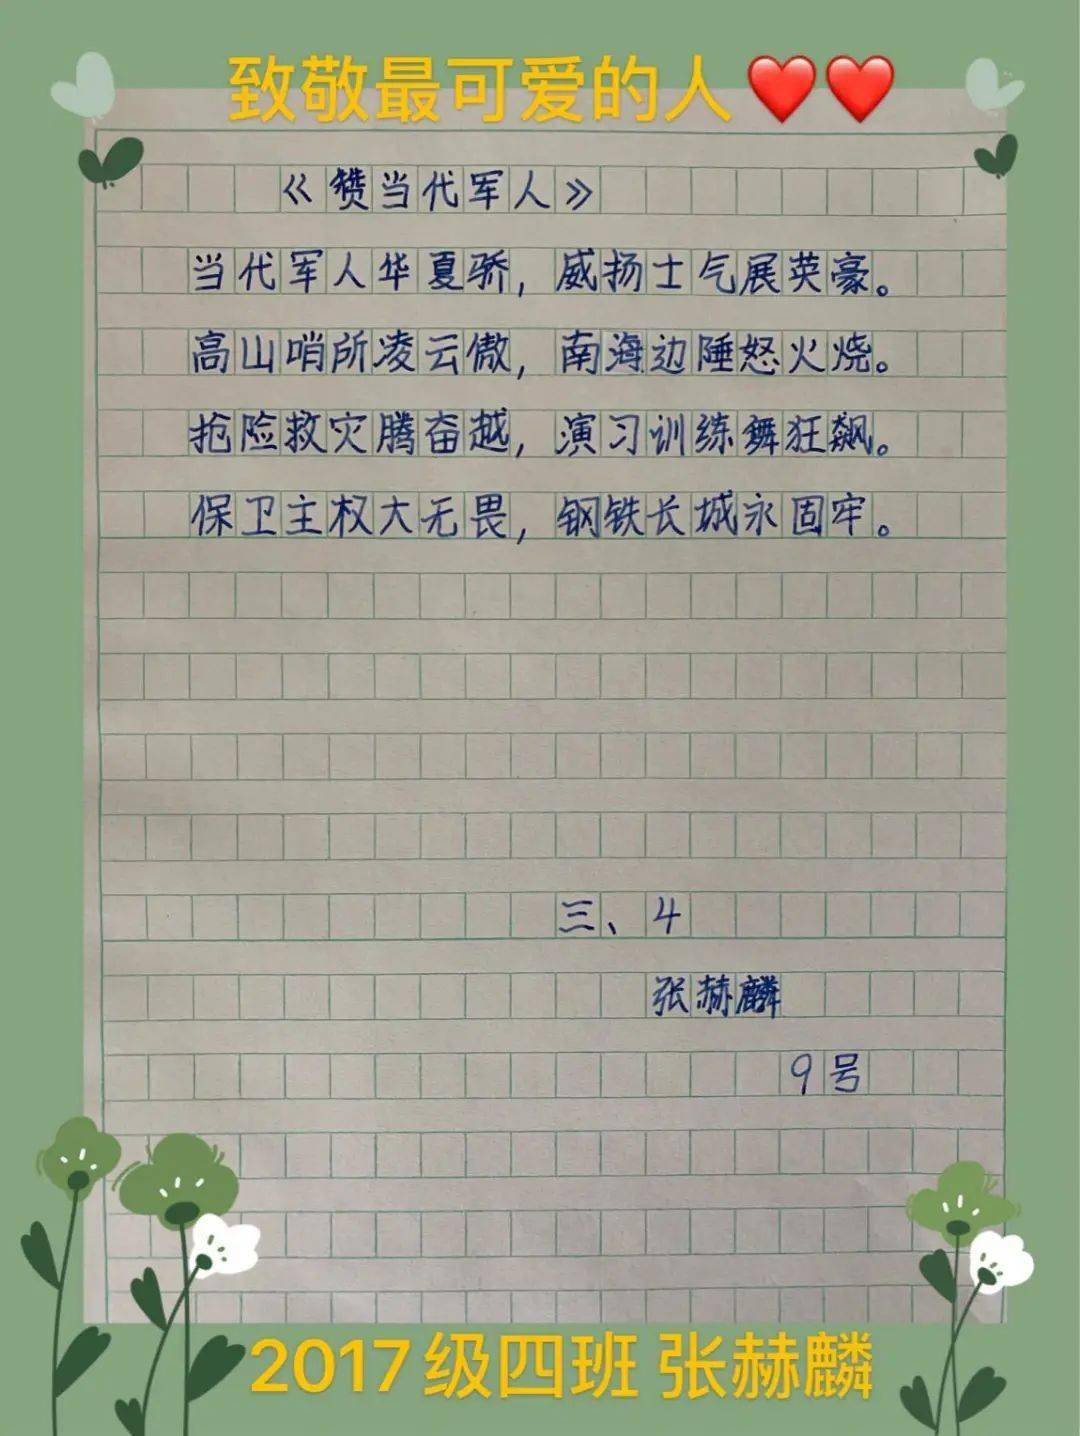 致敬最可爱的人❤️❤️
《赞当代军人》
当代军人华夏骄，威扬士气展英豪。
高山哨所凌云傲，南海边陲怒火烧。
抢险救灾腾奋越，演习训练舞狂飙。
保卫主权大无畏，钢铁长城永固牢。
三、4
张赫麟
9号
2017级四班 张赫麟